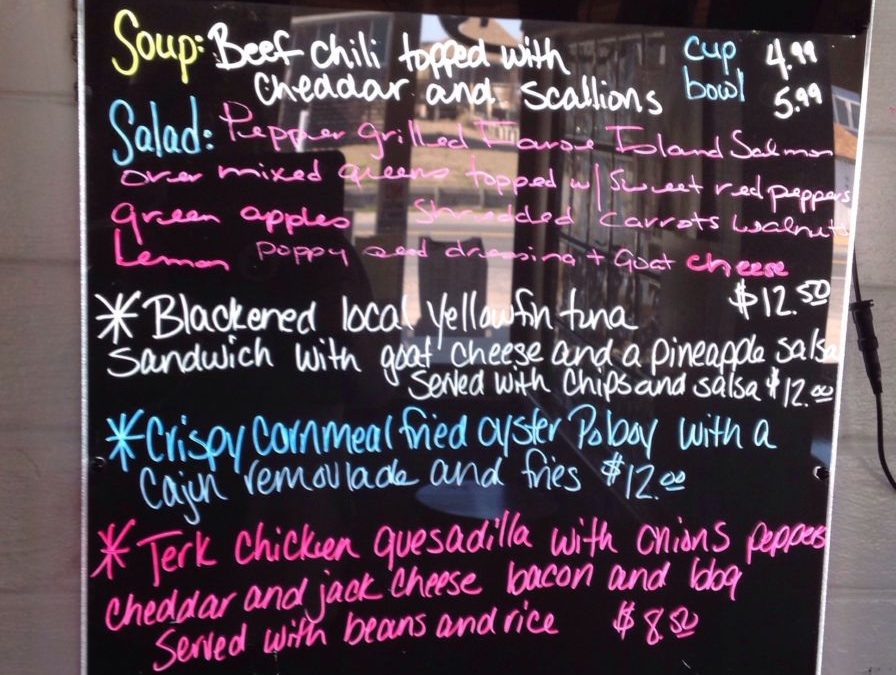 Soup: Beef chili topped with cup 4.99
cheddar and scallions bowl 5.99
Salad: Pepper grilled Faroe Island Salmon
over mixed greens topped w/ Sweet red peppers
green apples Shredded Carrots walnuts
Lemon poppy seed dressing + Goat cheese
$12.50
* Blackened local Yellowfin tuna
Sandwich with goat cheese and a pineapple salsa
Served with Chips and salsa $12.00
* Crispy Cornmeal fried oyster Poboy with a
Cajun remoulade and fries $12.00
* Jerk chicken quesadilla with onions peppers
cheddar and jack cheese bacon and bbq
Served with beans and rice $8.50